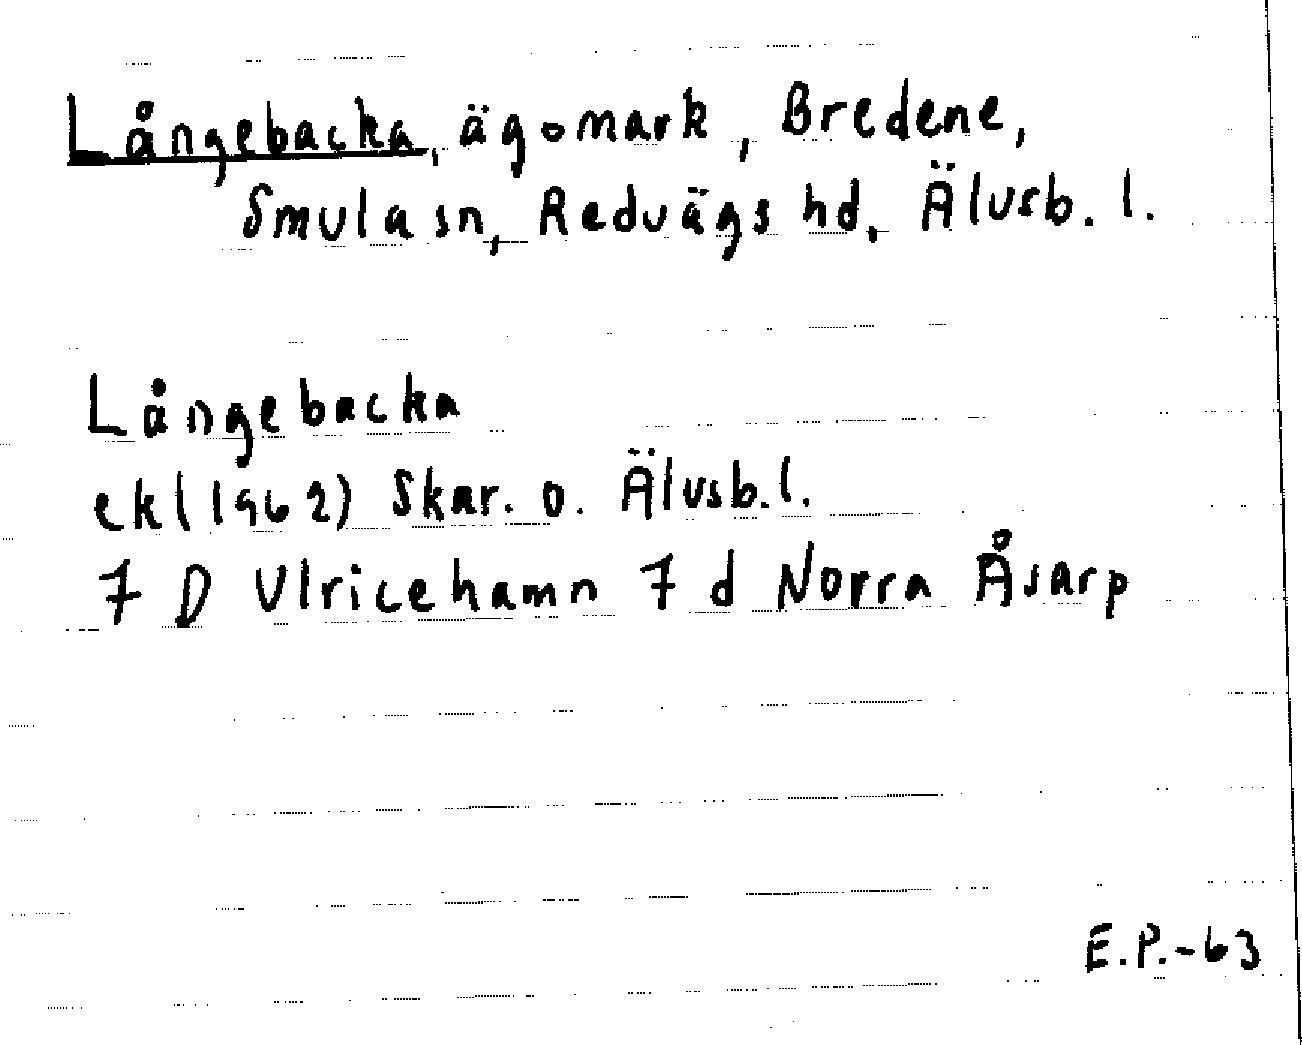 Långebacka, ägomark, Bredene,
Smula sn, Redvägs hd, Älvsb. l.
Långebacka
ek (1962) Skar. o. Älvsb. l.
7 D Ulricehamn 7 d Norra Åsarp
E.P.-63